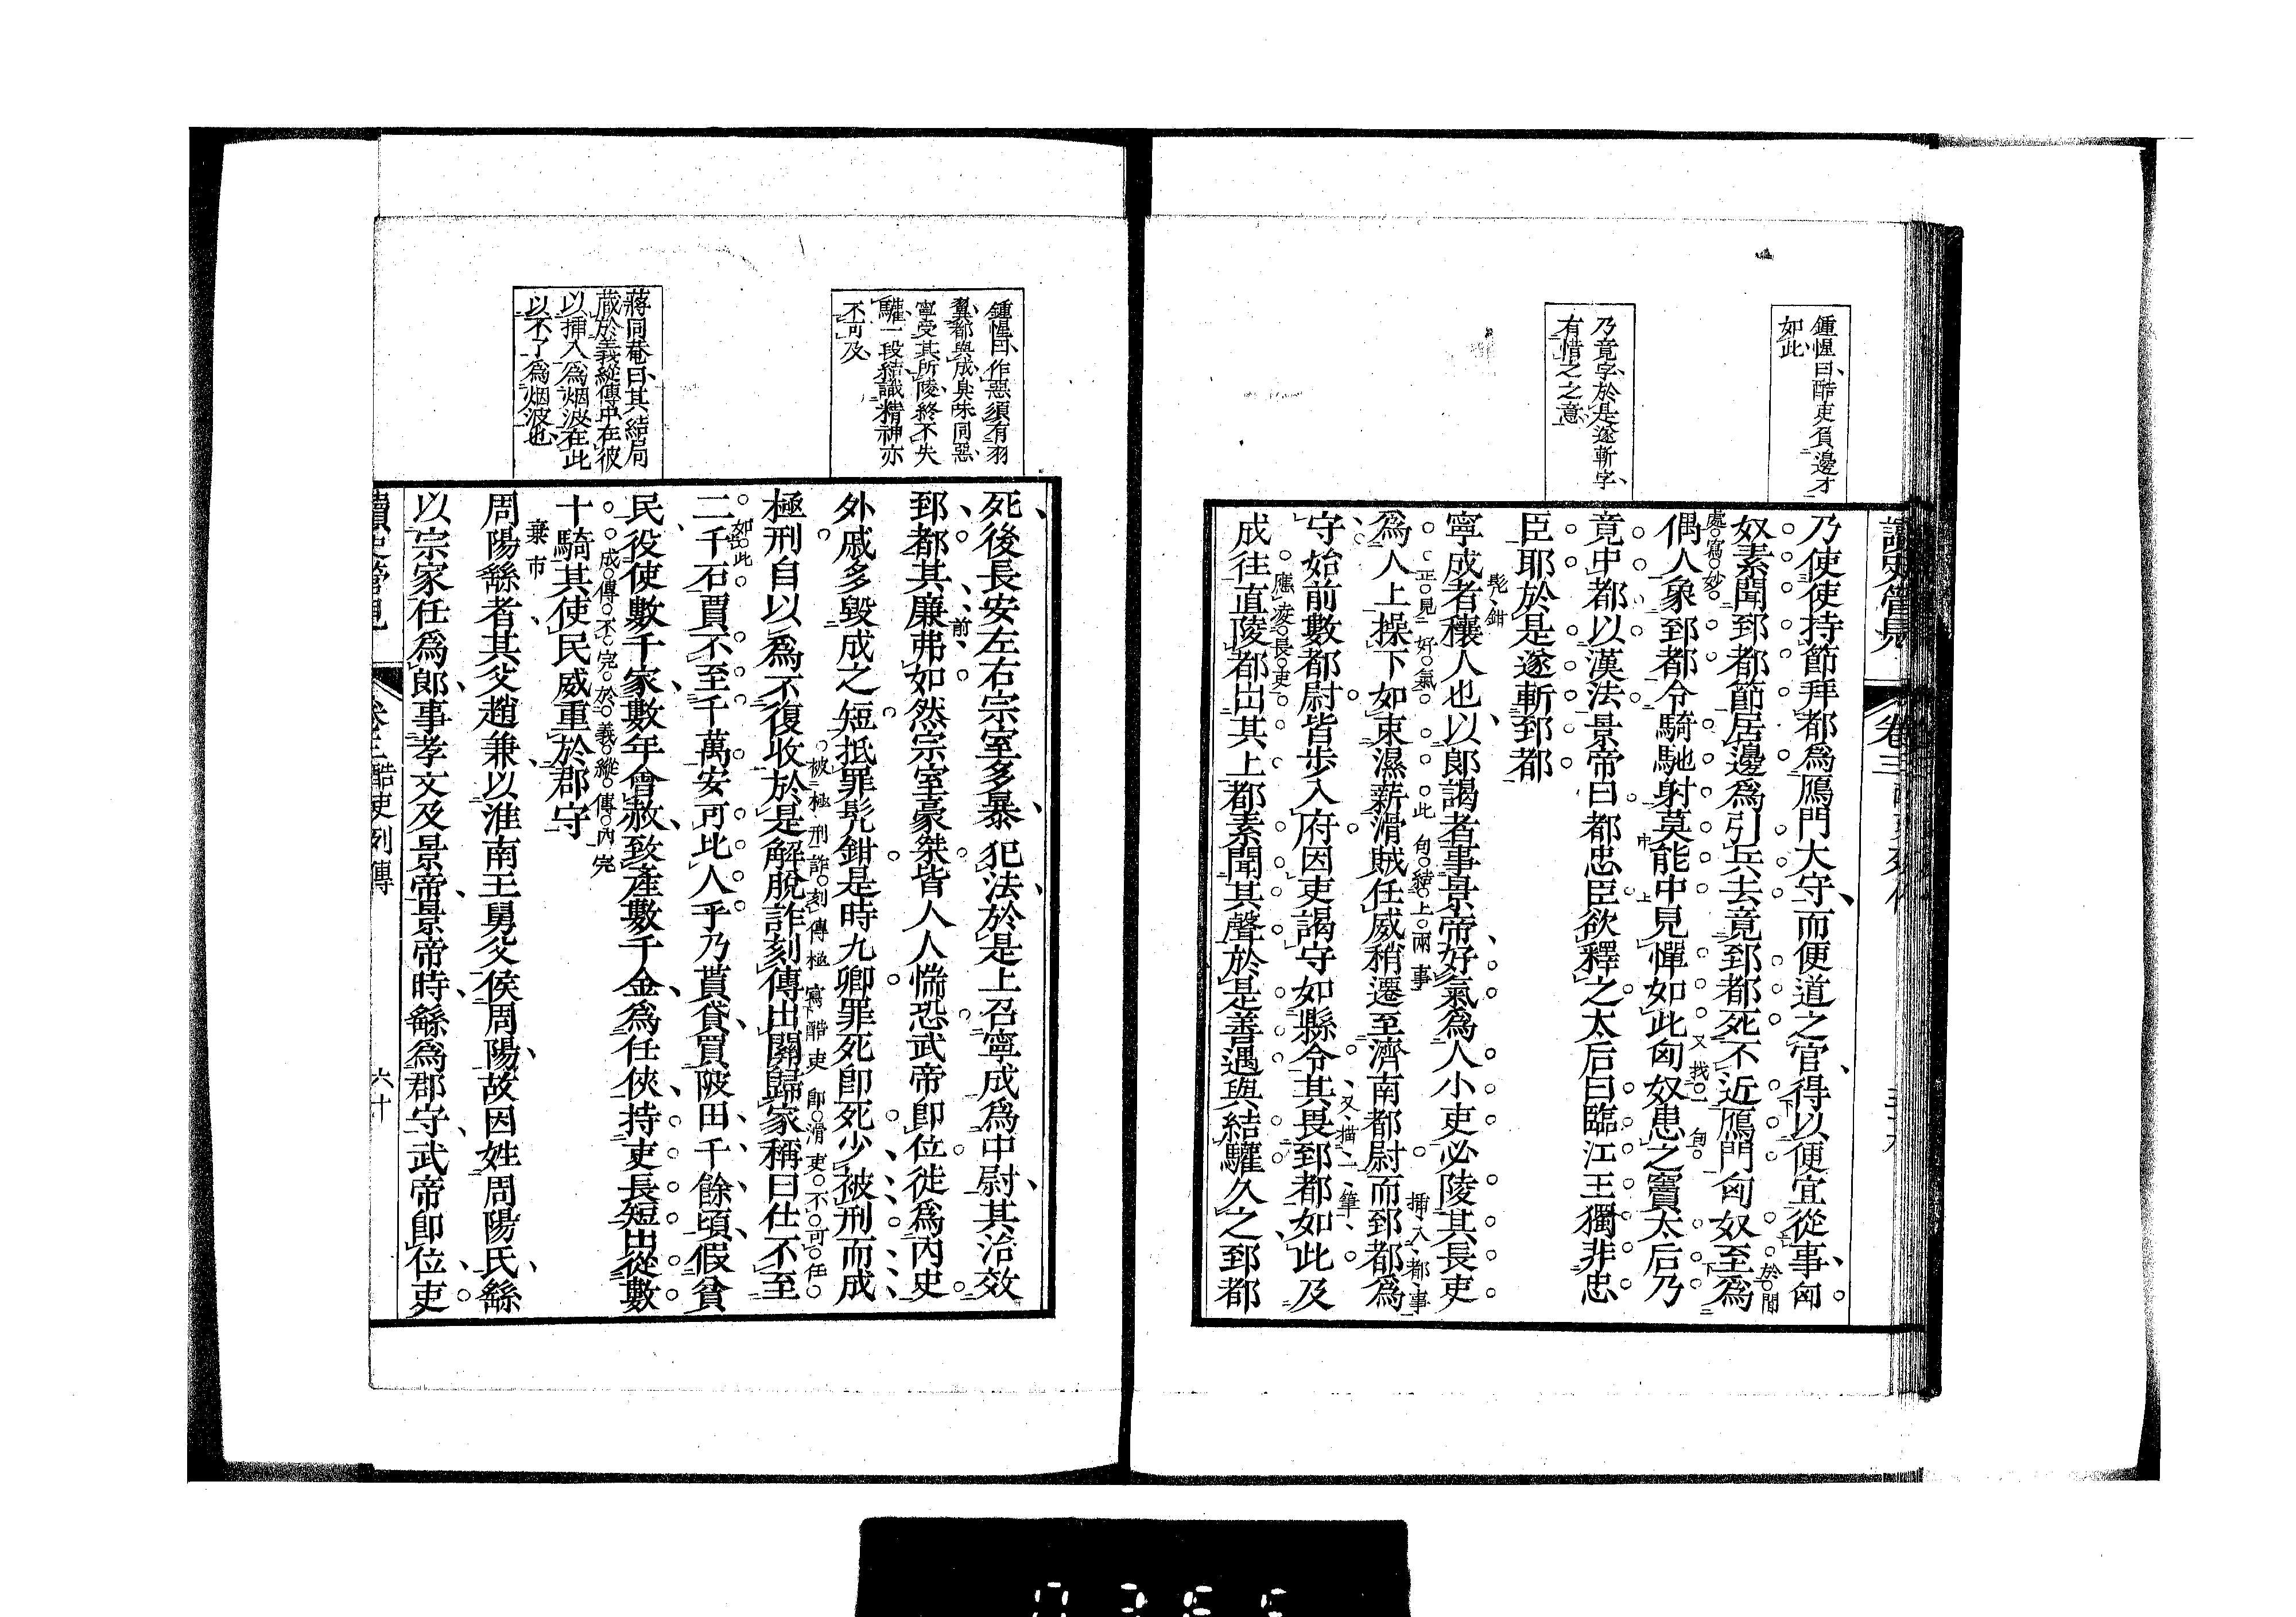 讀史管見
卷三
鍾惺曰酷吏負邊才
如此
乃竟字於是遂斬字
有惜之之意
乃使使持節拜都爲鴈門大守而便道之官得以便宜從事匈
奴素聞郅都節居邊爲引兵去竟郅都死不近鴈門匈奴至爲
偶人象郅都令騎馳射莫能中見憚如此匈奴患之竇太后乃
竟中都以漢法景帝曰都忠臣欲釋之太后曰臨江王獨非忠
臣耶於是遂斬郅都
寧成者穰人也以郞謁者事景帝好氣爲人小吏必陵其長吏
爲人上操下如束濕薪滑賊任威稍遷至濟南都尉而郅都爲
守始前數都尉皆步入府因吏謁守如縣令其畏郅都如此及
成往直陵都出其上都素聞其聲於是善遇與結驩久之郅都
鍾惺曰作惡須有羽
翼都與成臭味同惡
寧受其所陵終不失
驩一段結識精神亦
不可及
蔣同菴曰其結局
蔵於義縱傳中在彼
以揷入爲烟波在此
以不了爲烟波也
死後長安左右宗室多暴犯法於是上召寧成爲中尉其治效
郅都其廉弗如然宗室豪桀皆人人惴恐武帝卽位徙爲內史
外戚多毀成之短抵罪髡鉗是時九卿罪死卽死少被刑而成
極刑自以爲不復收於是解脫詐刻傳出關歸家稱曰仕不至
二千石賈不至千萬安可比人乎乃貰貸買陂田千餘頃假貧
民役使數千家數年會赦致產數千金爲任俠持吏長短出從數
十騎其使民威重於郡守
周陽繇者其父趙兼以淮南王舅父侯周陽故因姓周陽氏繇
以宗家任爲郎事孝文及景帝景帝時繇爲郡守武帝卽位吏
讀史管見
卷三 酷吏列傳
六十